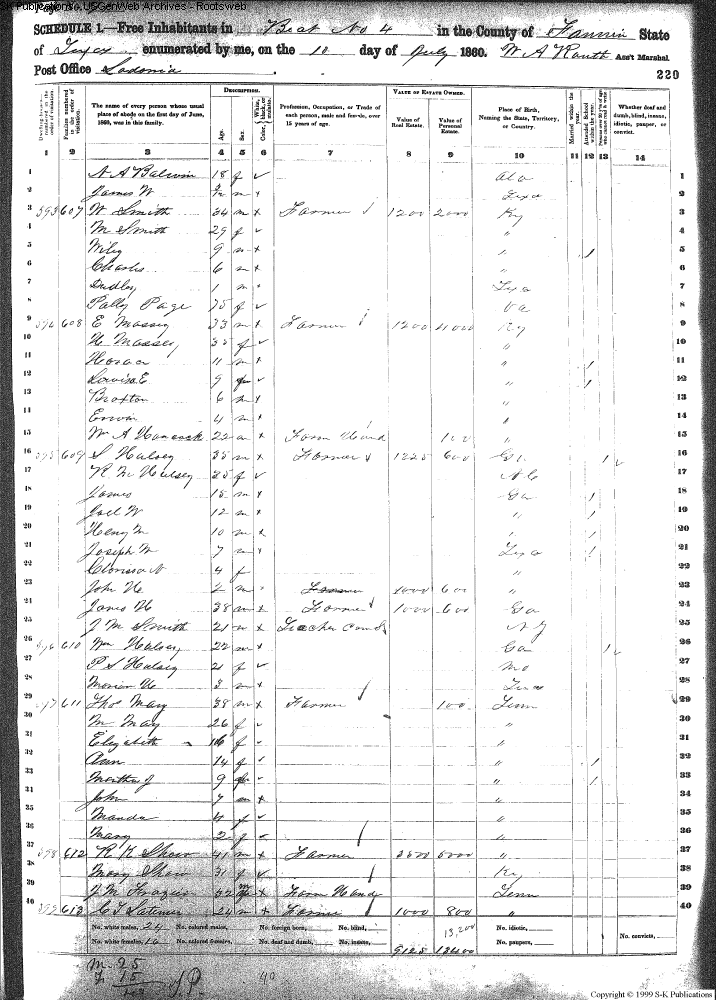 S-K Publications to USGenWeb Archives - Rootsweb
SCHEDULE 1.—Free Inhabitants in Beat No 4 in the County of Fannin State
of Texas enumerated by me, on the 10 day of July 1860. W A Routh Ass't Marshal
Post Office Ladonia
220
Dwelling-houses—numbered in the order of visitation.
Families numbered in the order of visitation.
The name of every person whose usual place of abode on the first day of June, 1860, was in this family.
DESCRIPTION.
Age.
Sex.
Color, White, black, or mulatto.
Profession, Occupation, or Trade of each person, male and female, over 15 years of age.
VALUE OF ESTATE OWNED.
Value of Real Estate.
Value of Personal Estate.
Place of Birth, Naming the State, Territory, or Country.
Married within the year.
Attended School within the year.
Persons over 20 y'rs of age who cannot read & write
Whether deaf and dumb, blind, insane, idiotic, pauper, or convict.
1 2 3 4 5 6 7 8 9 10 11 12 13 14
1 18 f Ala 1
2 James W m Texa 2
3 393 607 W Smith 34 m Farmer 1200 2000 Ky 3
4 M Smith 29 f " 4
5 Wiley 9 m " / 5
6 Charles 6 m " 6
7 Dudley 1 m Texa 7
8 Page 75 f Va 8
9 394 608 E Massey 33 m Farmer 1200 Ky 9
10 Massey f " 10
11 Horace 11 m " / 11
12 Louisa E 9 f " / 12
13 Braxton 6 m " 13
14 4 m " 14
15 Wm A Hancock 22 m Farm Hand 100 " 15
16 395 609 S Hulsey 35 m Farmer 1225 600 Ga / 16
17 Hulsey 35 f 17
18 James 15 m Ga / 18
19 Joel W 12 m " / 19
20 Henry M 10 m " / 20
21 Joseph M 7 m Texa / 21
22 Clarissa A 4 f " 22
23 John H 2 m Farmer 1000 600 " 23
24 James H 38 m Farmer 1000 600 Ga 24
25 J M Smith 21 m Teacher N Y 25
26 396 610 Wm Hulsey 22 m Ga / 26
27 P S Hulsey 21 f Mo 27
28 Marion H 3 m Texa 28
29 397 611 Thos May 38 m Farmer 100 Tenn 29
30 M May 26 f " 30
31 Elizabeth 16 f " 31
32 Ann 14 f " / 32
33 Martha J 9 f " / 33
34 John 7 m " 34
35 Manda 4 f " 35
36 Mary 2 f " 36
37 398 612 R K Shaw 41 m Farmer 5000 " 37
38 Mary Shaw 31 f Ky 38
39 J M m Farm Hand Tenn 39
40 399 613 C T Latimer 24 m Farmer 1000 800 " 40
No. white males, 24 No. colored males, No. foreign born, No. blind, 13,200 No. idiotic,
No. white females, 16 No. colored females, No. deaf and dumb, No. insane, 9125 No. paupers, No. convicts,
M. 25
F. 15
40
Copyright © 1999 S-K Publications